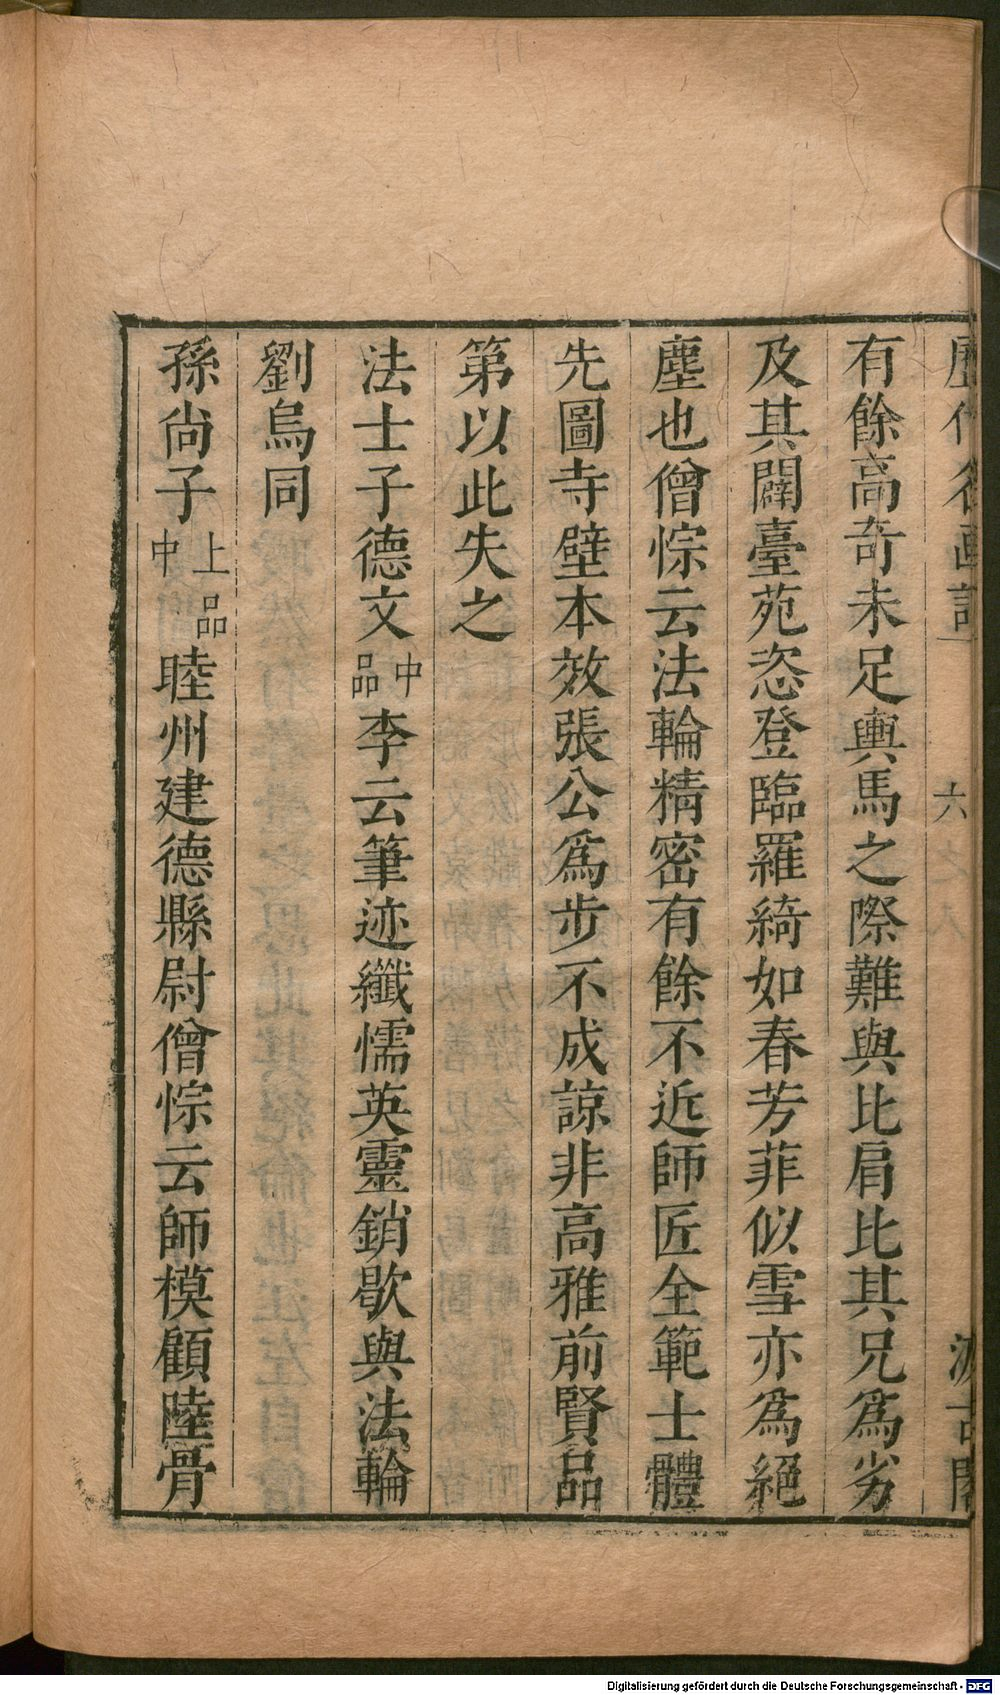 歷代名畫記
六
汲古閣
有餘高奇未足輿馬之際難與比肩比其兄爲劣
及其闢臺苑恣登臨羅綺如春芳菲似雪亦爲絕
塵也僧悰云法輪精密有餘不近師匠全範士體
先圖寺壁本效張公爲步不成諒非高雅前賢品
第以此失之
法士子德文中品李云筆迹纖懦英靈銷歇與法輪
劉烏同
孫尙子上品中睦州建德縣尉僧悰云師模顧陸骨
Digitalisierung gefördert durch die Deutsche Forschungsgemeinschaft - DFG